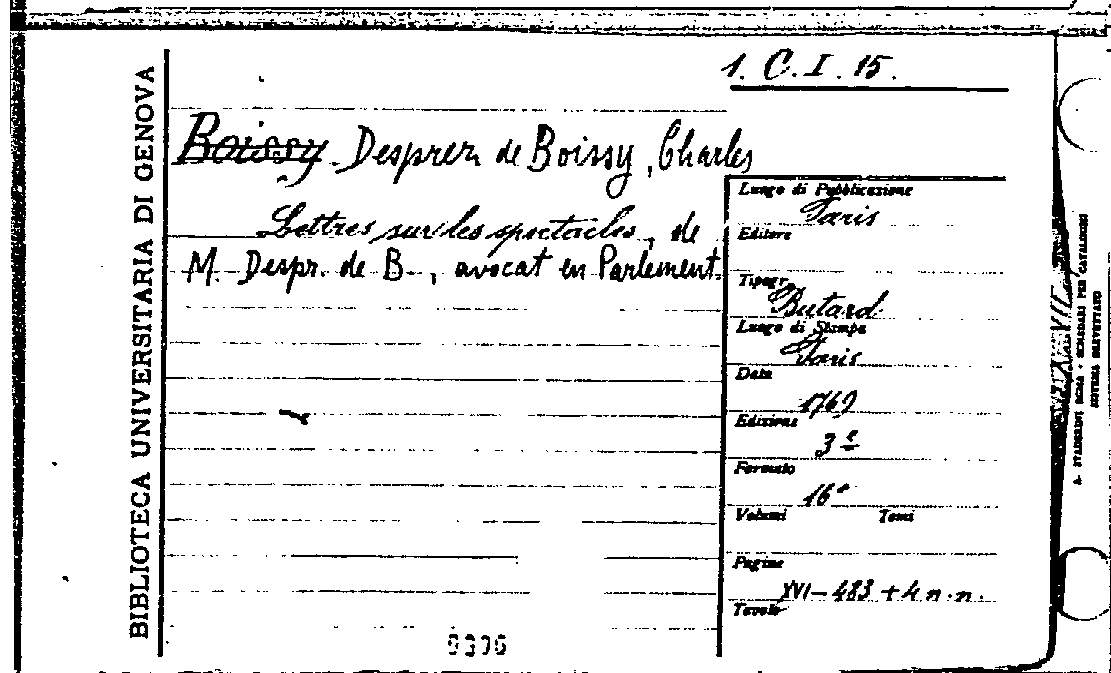 1. C. I. 15.
BIBLIOTECA UNIVERSITARIA DI GENOVA
Boissy Desprez de Boissy, Charles
Lettres sur les spectacles, de
M. Despr. de B., avocat en Parlement.
Luogo di Pubblicazione
Paris
Editore
Tipogr.
Butard
Luogo di Stampa
Paris
Data
1769
Edizione
3e
Formato
16°
Volumi Tomi
Pagine
XVI-483+4 n.n.
Tavole
A. STADERINI ROMA - SCHEDARI PER CATALOGHI
SISTEMA BREVETTATO